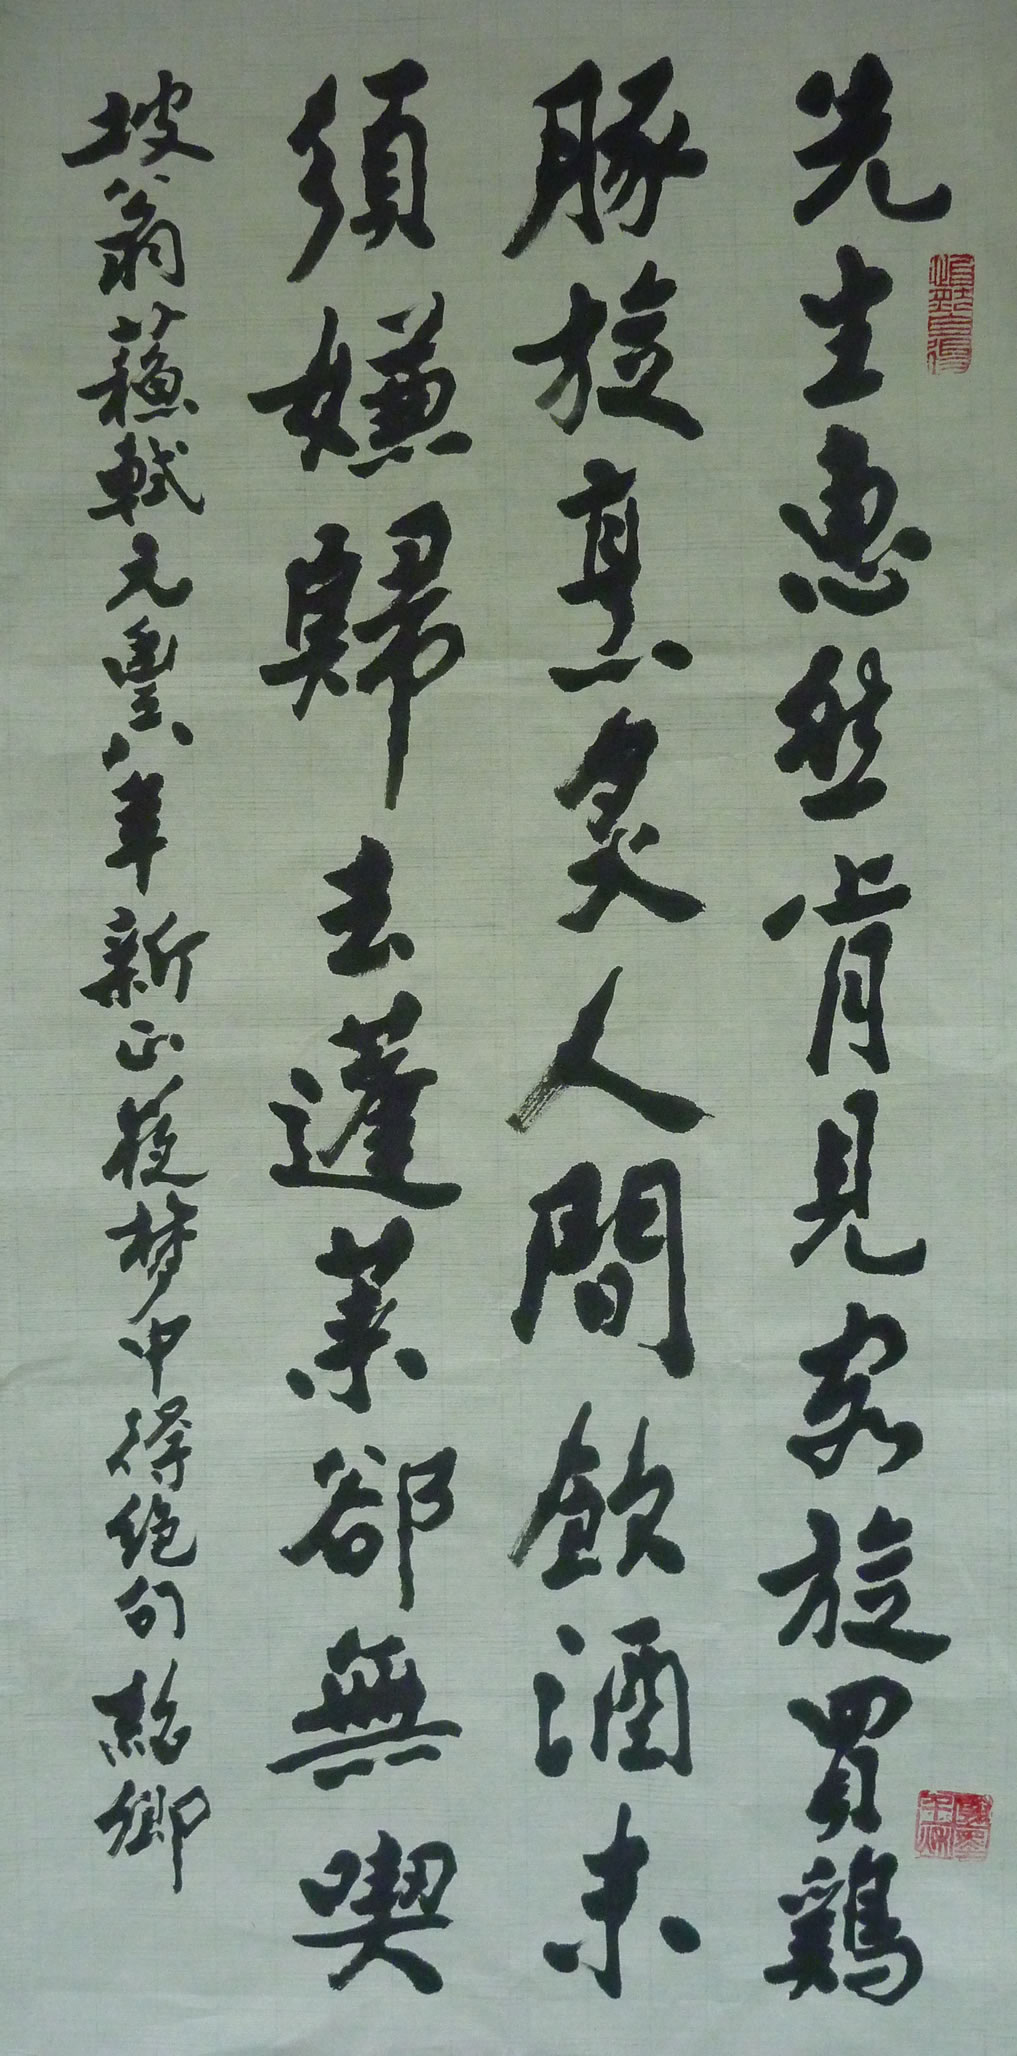 先生惠然肯見客旋買鷄
豚旋烹炙人間飲酒未
須嫌歸去蓬萊卻無喫
坡翁蘇軾元豐八年新正夢中得絕句 卿